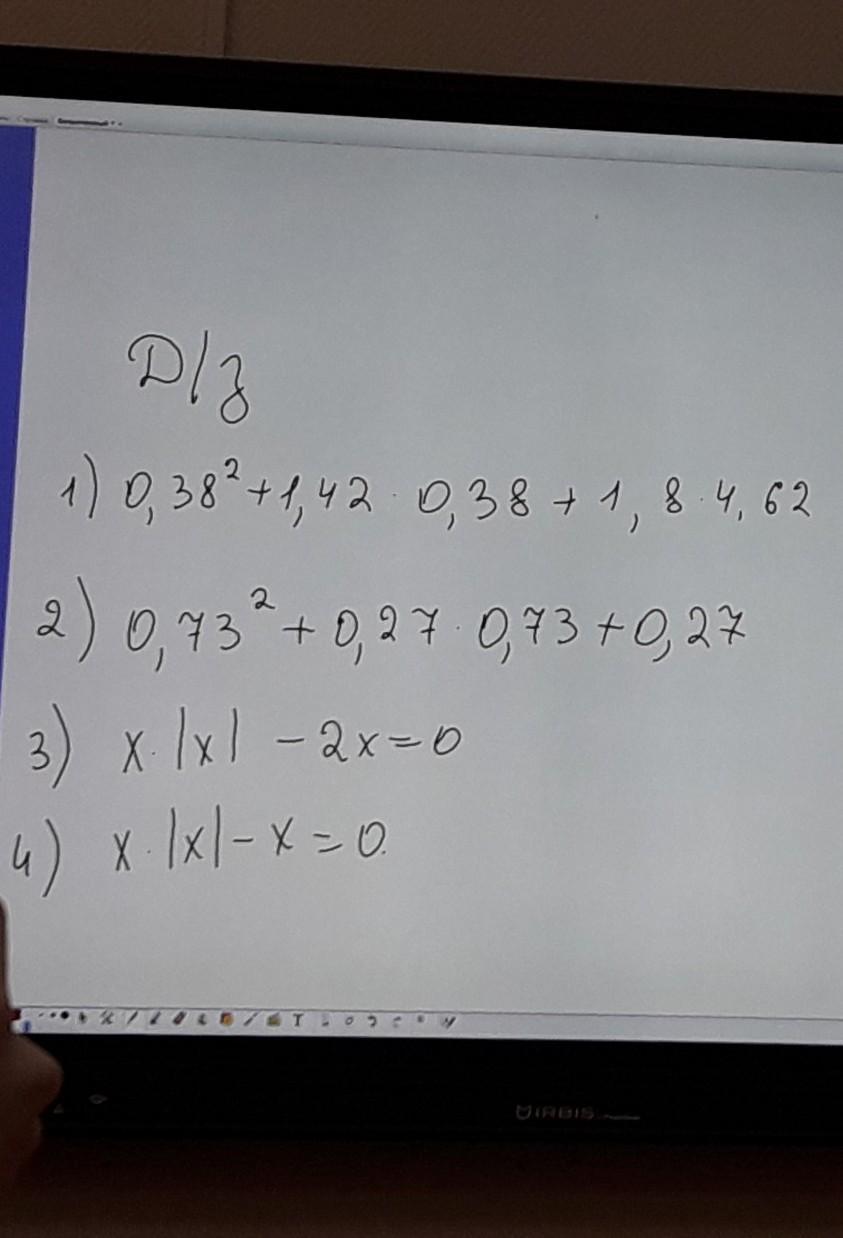 Д/з
1) 0,38² + 1,42 · 0,38 + 1,8 · 4,62
2) 0,73² + 0,27 · 0,73 + 0,27
3) x · |x| - 2x = 0
4) x · |x| - x = 0.
IRBIS